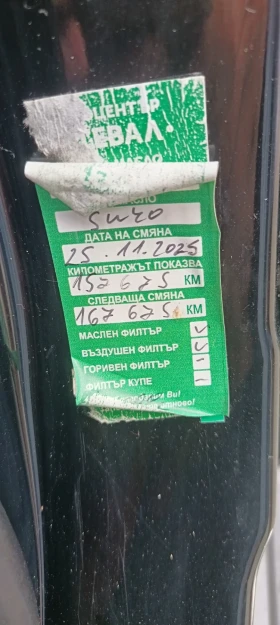 ЦЕНТЪР
ЕВАЛ.
5W40
ДАТА НА СМЯНА
25.11.2025
КИЛОМЕТРАЖЪТ ПОКАЗВА
157 675 КМ
СЛЕДВАЩА СМЯНА
167 675 КМ
МАСЛЕН ФИЛТЪР
ВЪЗДУШЕН ФИЛТЪР
ГОРИВЕН ФИЛТЪР
ФИЛТЪР КУПЕ